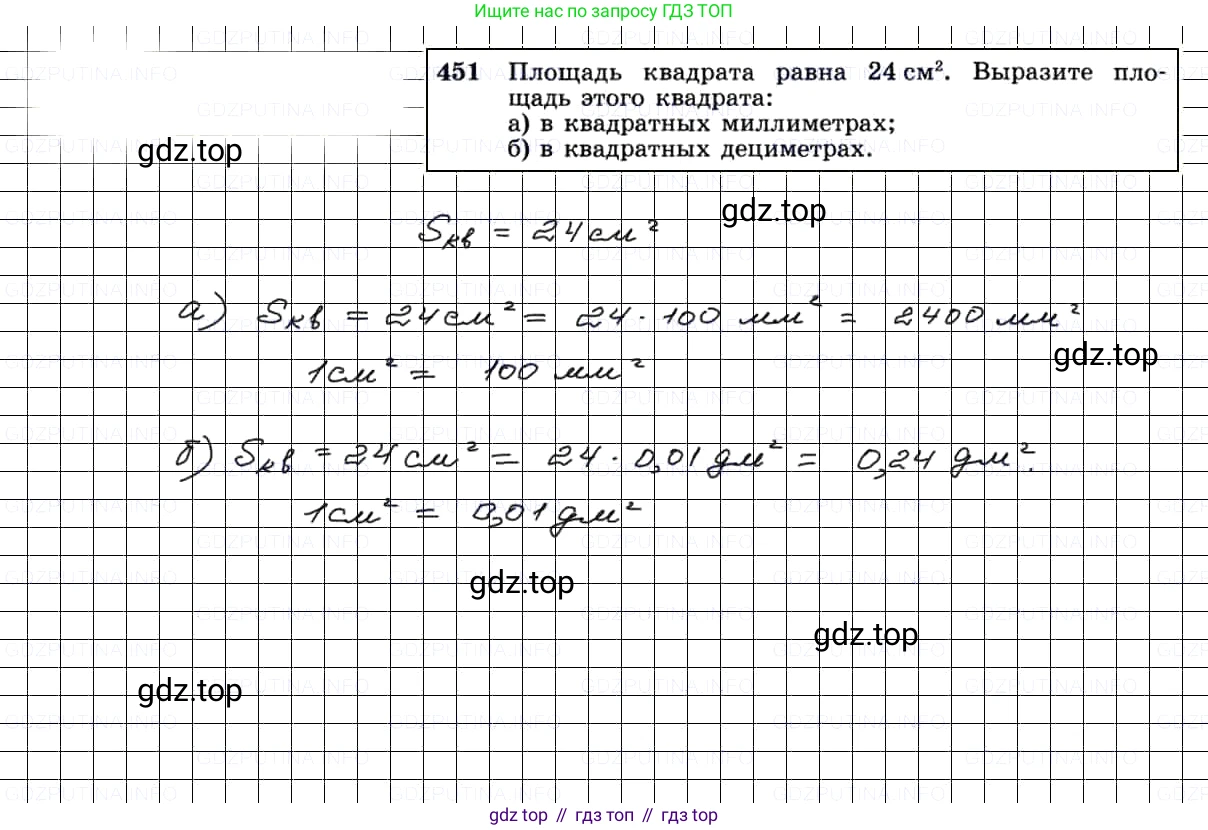 Ищите нас по запросу ГДЗ ТОП
451 Площадь квадрата равна 24 см². Выразите пло-
щадь этого квадрата:
а) в квадратных миллиметрах;
б) в квадратных дециметрах.
gdz.top
gdz.top
Sкв = 24 см²
а) Sкв = 24 см² = 24 · 100 мм² = 2400 мм²
gdz.top
1 см² = 100 мм²
б) Sкв = 24 см² = 24 · 0,01 дм² = 0,24 дм².
1 см² = 0,01 дм²
gdz.top
gdz.top
gdz.top
gdz.top // гдз топ // гдз top